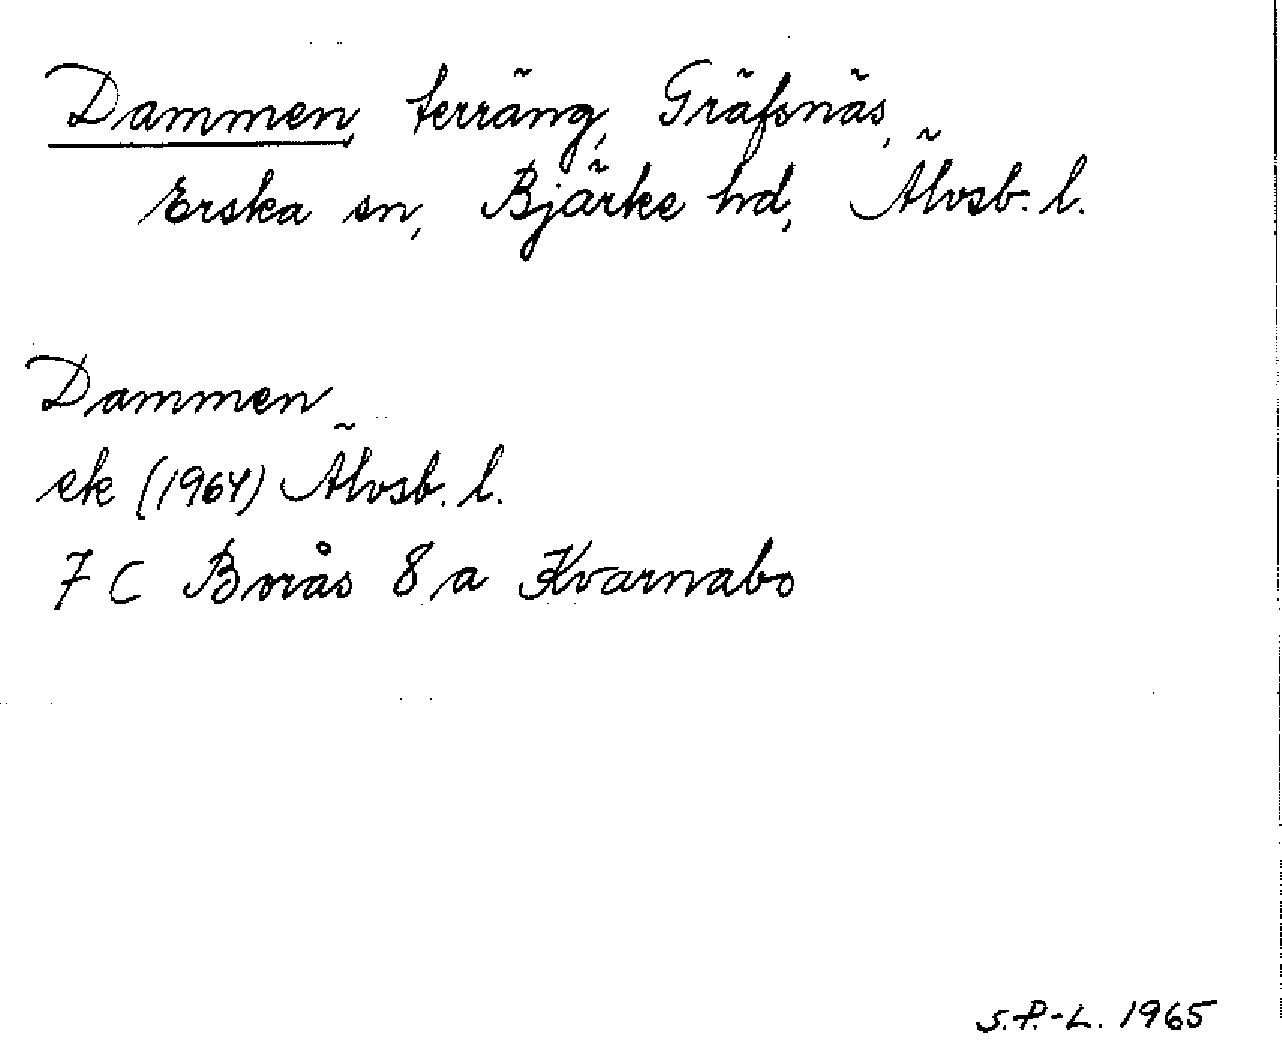 Dammen, terräng, Gräfsnäs,
Erska sn, Bjärke hd, Älvsb. l.
Dammen
ek (1964) Älvsb. l.
7 C Borås 8 a Kvarnabo
S.P.-L. 1965